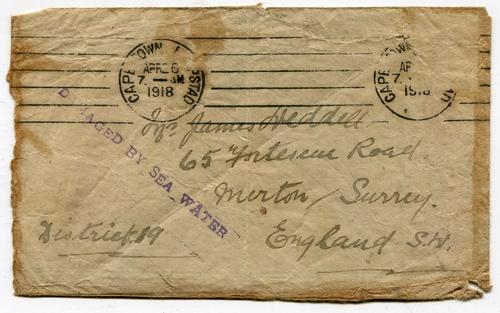 CAPE TOWN KAAPSTAD
APR 26
7. - AM
1918
CAPE TOWN
AP
7.
1918
DAMAGED BY SEA WATER
Mrs. James Weddell
65 Fortescue Road.
Merton, Surrey.
England S.W.
District. 19